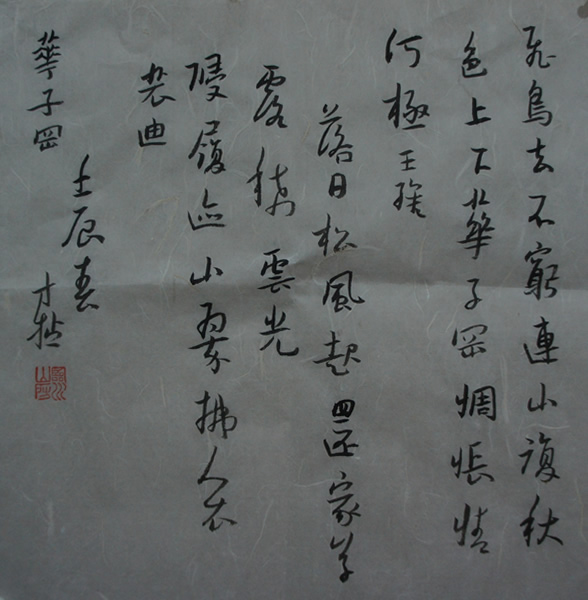 飛鳥去不窮連山複秋
色上下華子岡惆悵情
何極 王維
落日松風起還家草
露稀雲光
侵履迹山翠拂人衣
裴迪
華子岡
壬辰春
才